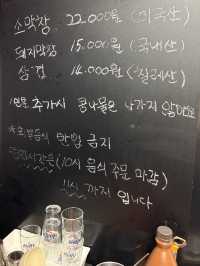 소막창 22.000원 (미국산)
돼지막창 15.000원 (국내산)
삼겹 14.000원 (칠레산)
1인분 추가시 콩나물은 나가지 않아요
음식 반입 금지
(10시 음식 주문 마감)
11시 까지 입니다